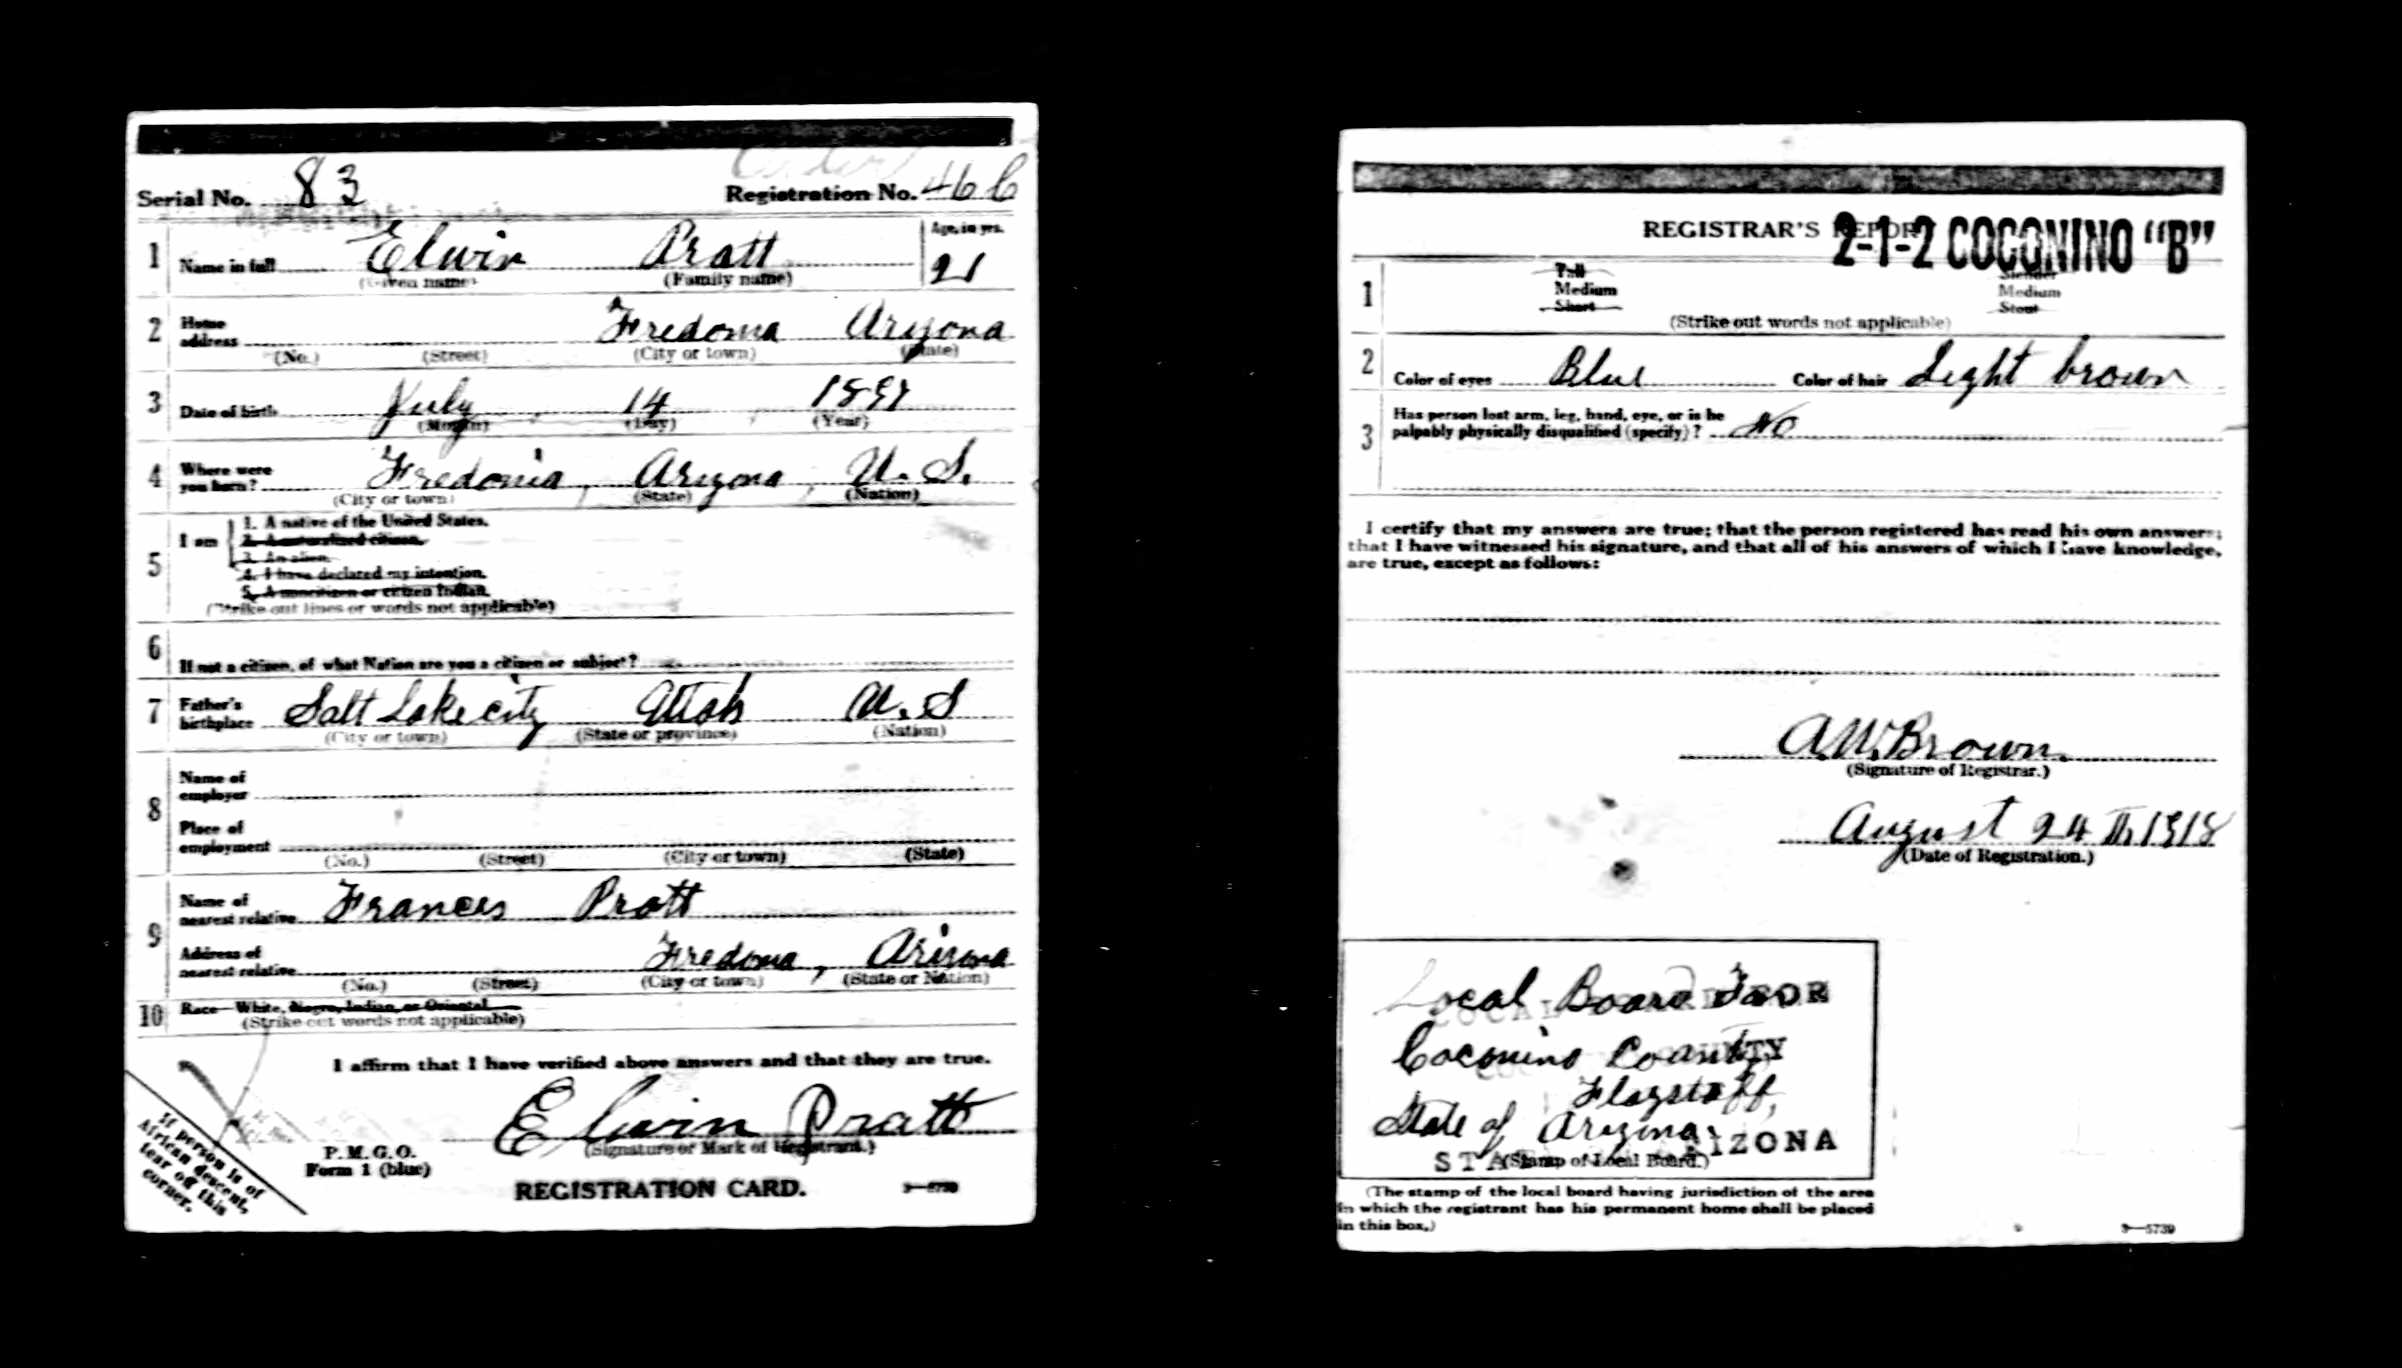 Serial No. 83 Registration No. 46
1 Name in full Elwin Pratt Age, in yrs. 21
(Given name) (Family name)
2 Home address Fredonia Arizona
(No.) (Street) (City or town) (State)
3 Date of birth July 14 1897
(Month) (Day) (Year)
4 Where were you born? Fredonia, Arizona, U. S.
(City or town) (State) (Nation)
5 I am
1. A native of the United States.
2. A naturalized citizen.
3. An alien.
4. I have declared my intention.
5. A noncitizen or citizen Indian.
(Strike out lines or words not applicable)
6 If not a citizen, of what Nation are you a citizen or subject?
7 Father's birthplace Salt Lake city Utah U. S
(City or town) (State or province) (Nation)
8 Name of employer
Place of employment
(No.) (Street) (City or town) (State)
9 Name of nearest relative Frances Pratt
Address of nearest relative Fredonia, Arizona
(No.) (Street) (City or town) (State or Nation)
10 Race—White, Negro, Indian, or Oriental
(Strike out words not applicable)
I affirm that I have verified above answers and that they are true.
Elwin Pratt
(Signature or Mark of Registrant.)
P. M. G. O.
Form 1 (blue)
REGISTRATION CARD.
3—5739
If person is of
African descent,
tear off this
corner.
REGISTRAR'S REPORT
2-1-2 COCONINO "B"
1 Tall Slender
Medium Medium
Short Stout
(Strike out words not applicable)
2 Color of eyes Blue Color of hair Light brown
3 Has person lost arm, leg, hand, eye, or is he
palpably physically disqualified (specify)? No
I certify that my answers are true; that the person registered has read his own answers;
that I have witnessed his signature, and that all of his answers of which I have knowledge,
are true, except as follows:
A. W. Brown
(Signature of Registrar.)
August 24 th 1918
(Date of Registration.)
Local Board For
LOCAL BOARD FOR
Coconino County
COUNTY
Flagstaff,
State of Arizona.
STATE ARIZONA
(Stamp of Local Board.)
(The stamp of the local board having jurisdiction of the area
in which the registrant has his permanent home shall be placed
in this box.)
3—5739